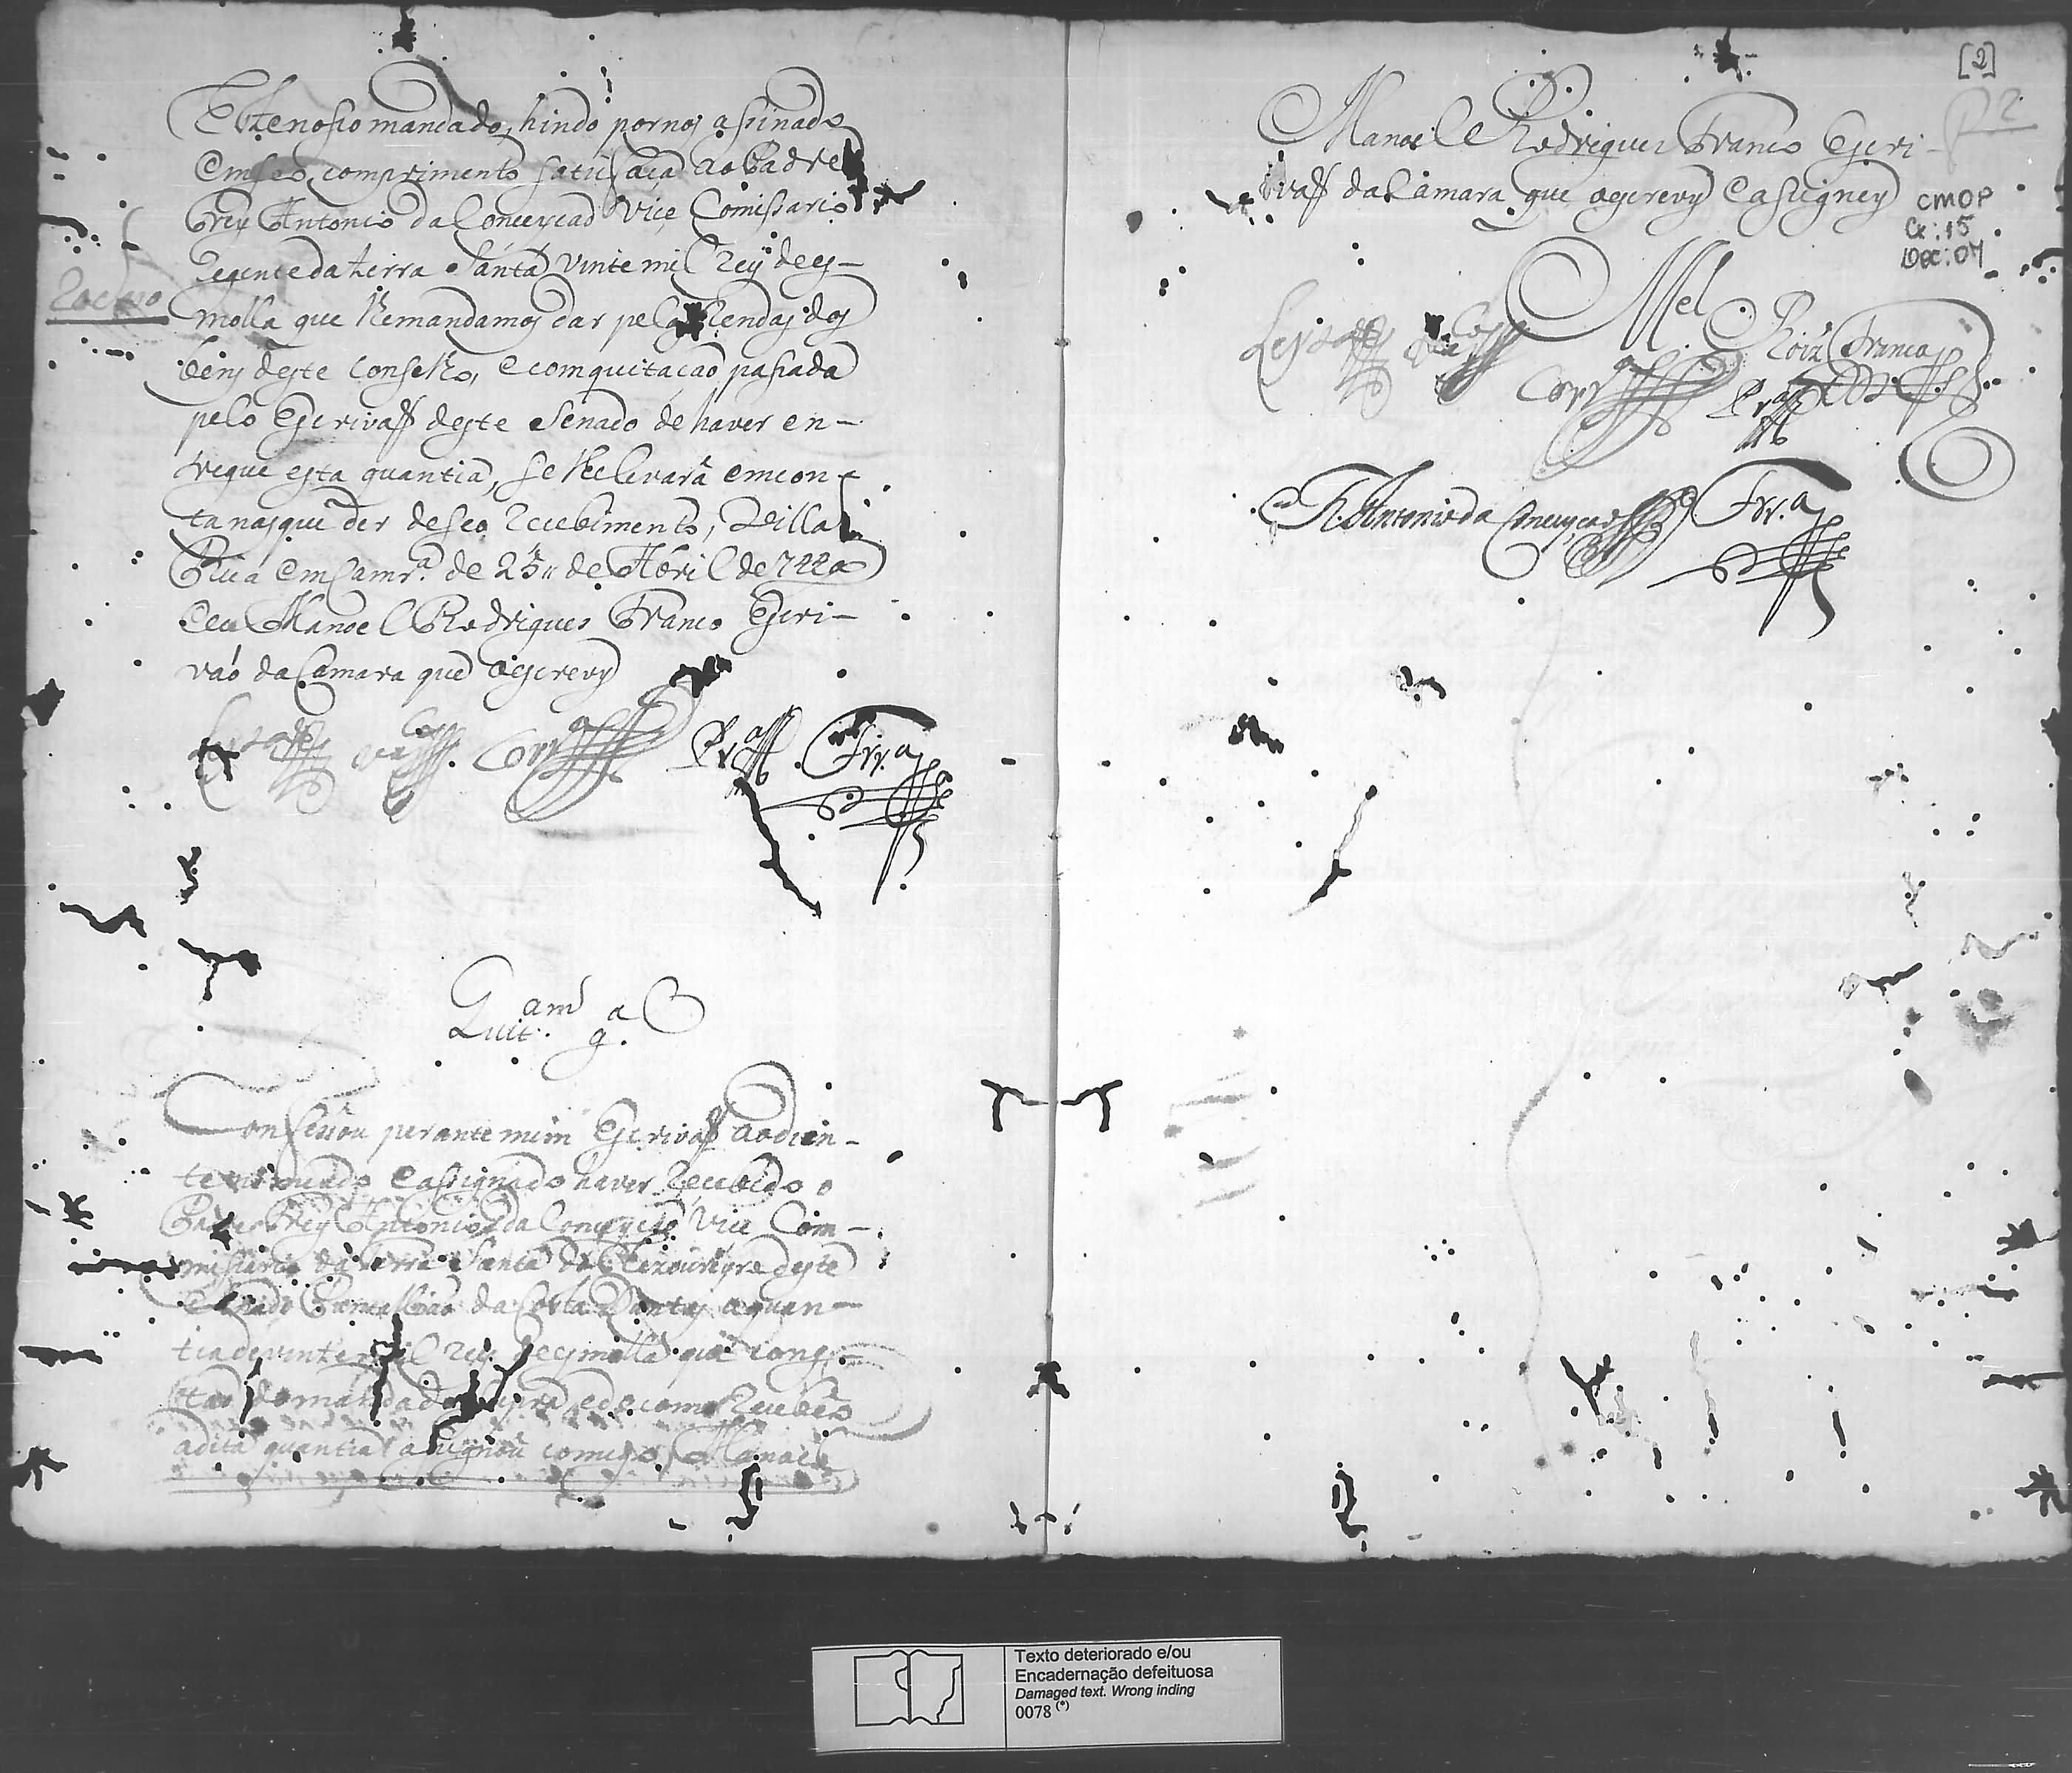 Este nosso mandado, hindo por nos assinado
em seo comprimento satisfaça ao Padre
Frey Antonio da Conceycaõ Vice Comissario
Regente da terra Santa vinte mil Reys de es-
molla que lhe mandamos dar pelas Rendas dos
bens deste Conselho, e com quitacaõ passada
pelo Escrivaõ deste Senado de haver en-
tregue esta quantia, se lhe levara em con-
ta nas que der de seo Recebimento, Villa
Rica em Camr.ª de 25 de Abril de 722 a
e eu Manoel Rodrigues Franco Escri-
vaõ da Camara que o escrevy
Corr.ª Frr.ª
Quit.
Confessou perante mim Escrivaõ ao dien-
te nomeado e assignado haver Recebido o
Padre Frey Antonio da Conceycaõ Vice Com-
missario da terra Santa do Thezoureyro deste
Senado da Costa Dantas a quan-
tia de vinte mil Reys de esmolla que cons-
ta do mandado supra, e de como Recebeo
a dita quantia assignou comigo Manoel
[2]
Manoel Rodrigues Franco Escri-
vaõ da Camara que o escrevy e assigney
CMOP
Cx: 15
Doc: 07
Mel Roiz Franco
Corr.ª
Fr. Antonio da Conceyçaõ Frr.ª
Texto deteriorado e/ou
Encadernação defeituosa
Damaged text. Wrong inding
0078 (*)